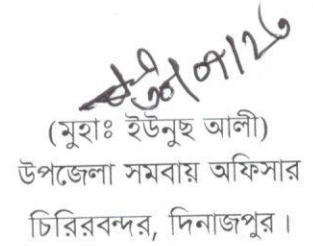 (মুহাঃ ইউনুছ আলী)
উপজেলা সমবায় অফিসার
চিরিরবন্দর, দিনাজপুর।